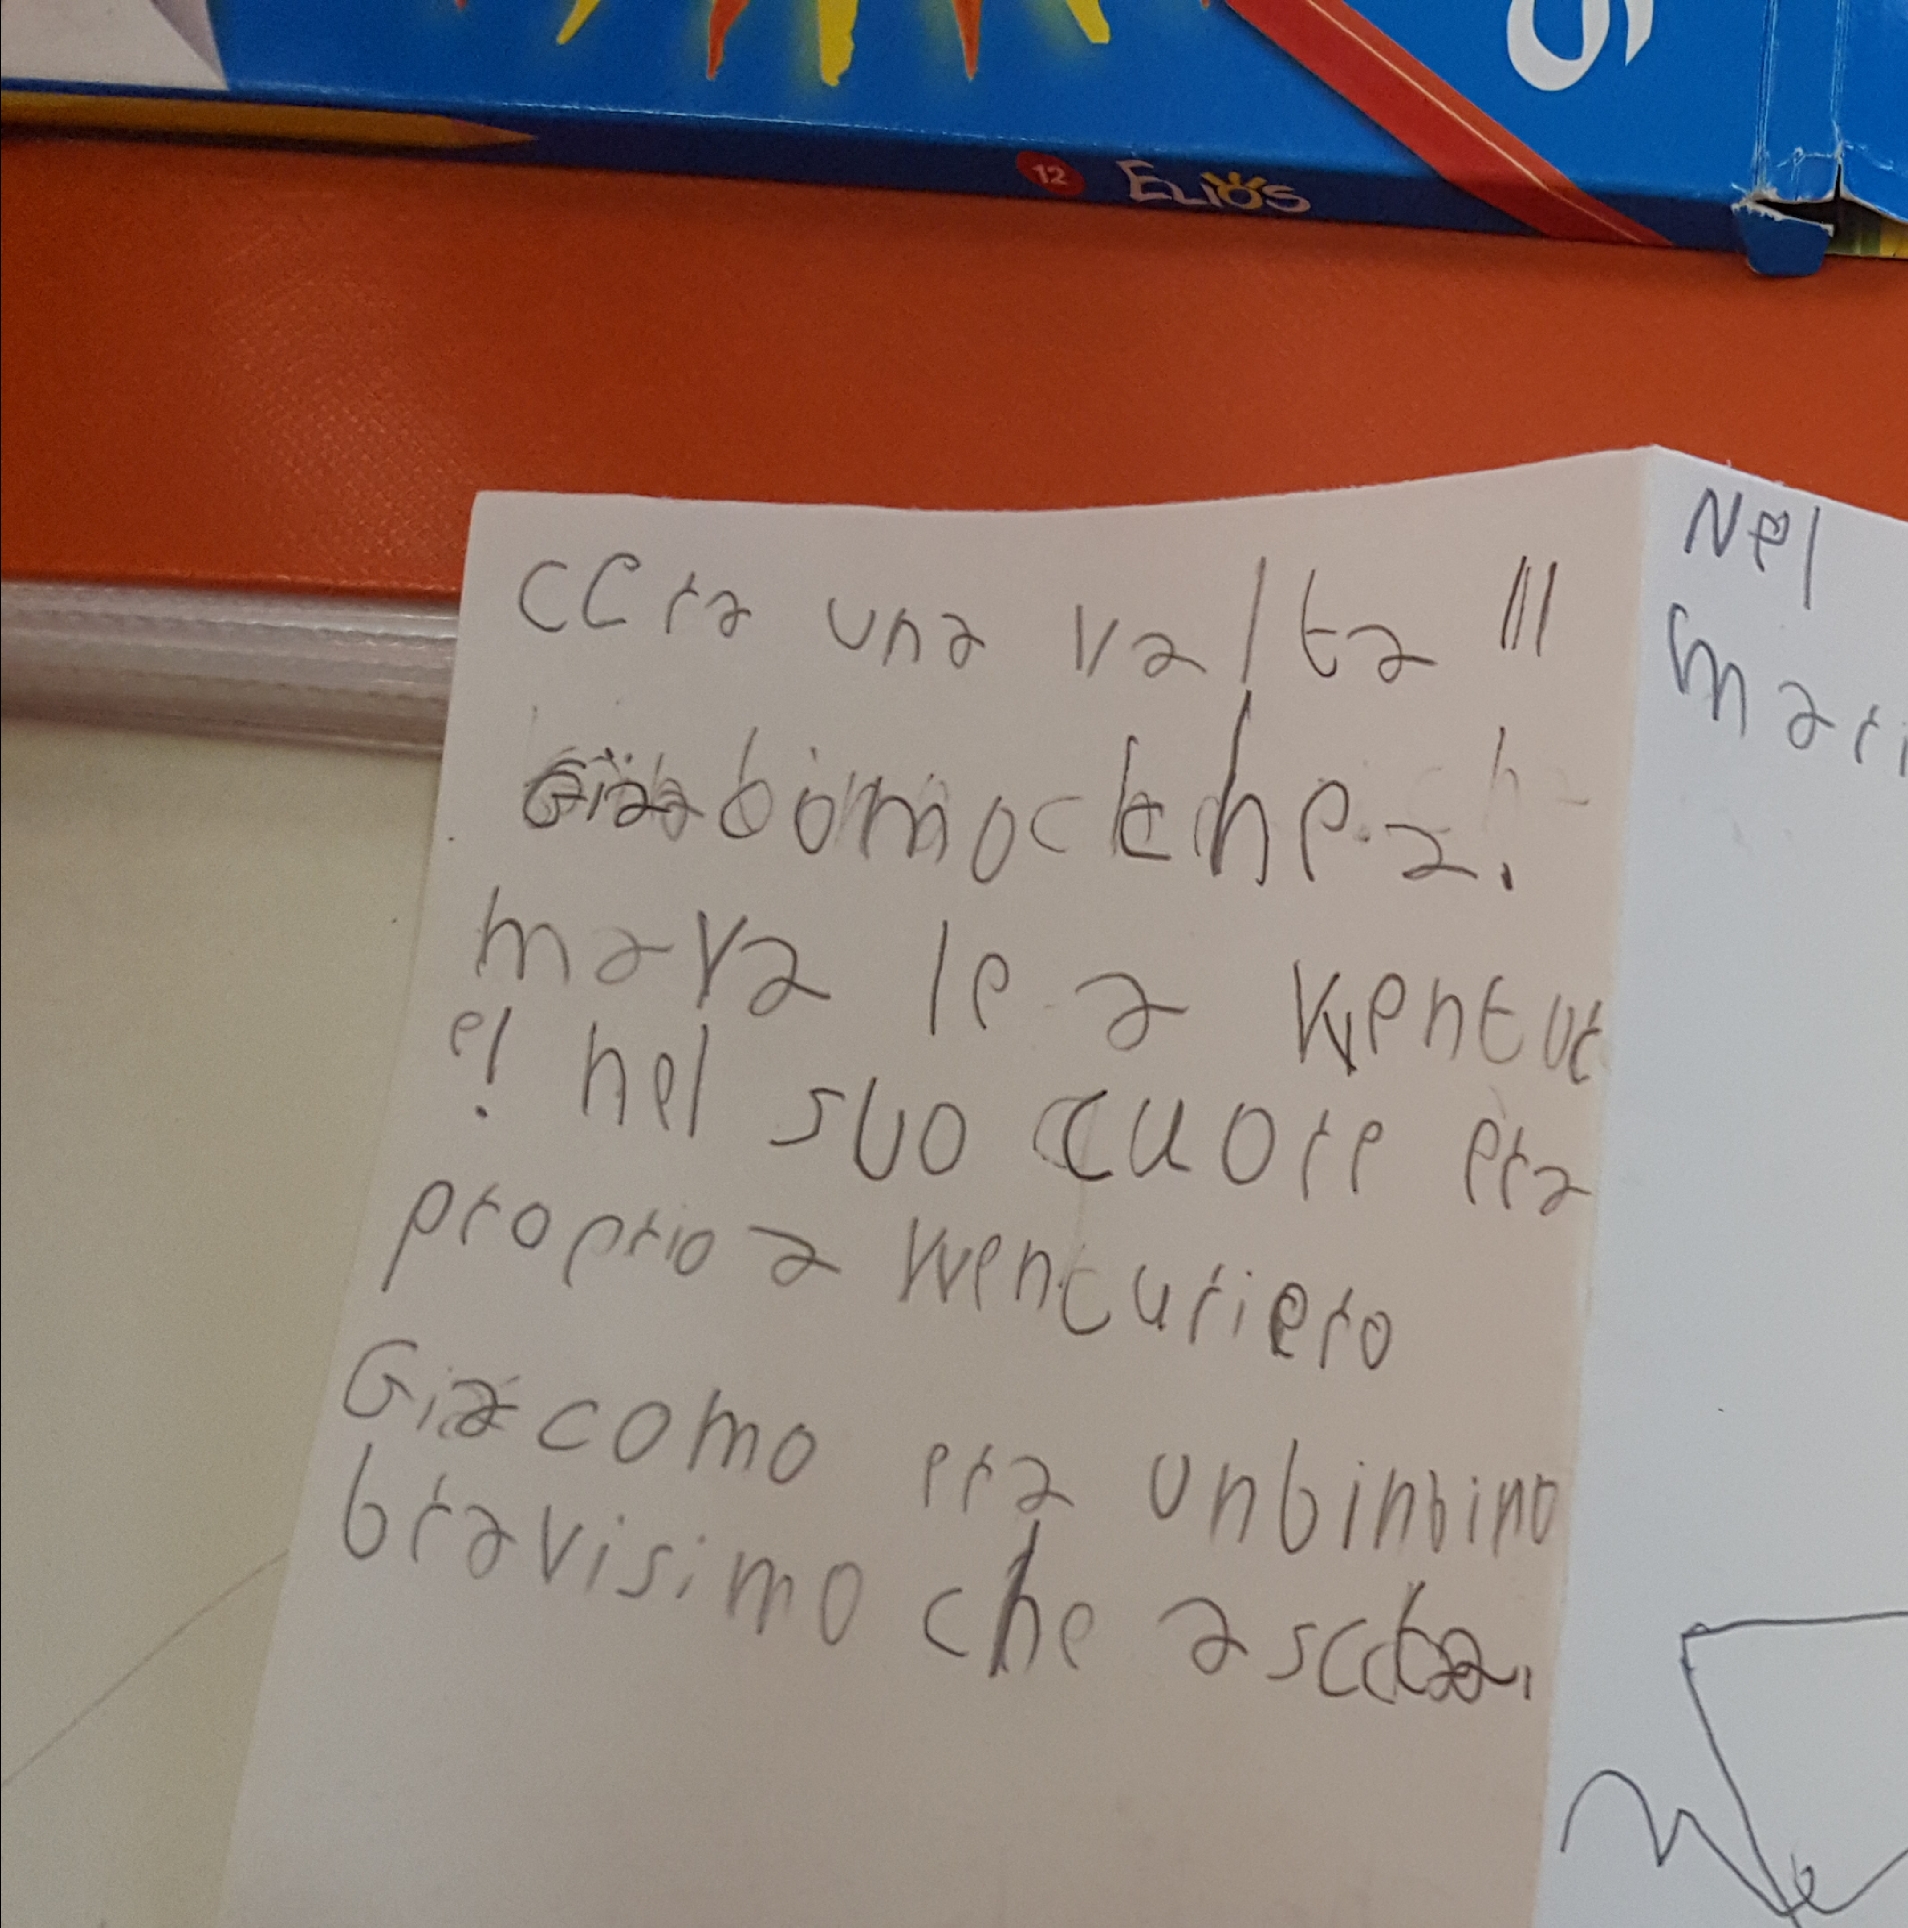 12 ELIOS
CCra una valta
bomo che a.
mava le a vventur
e! nel suo cuore era
proprio a vventuriero
Giacomo era unbinbino
bravisimo che
Nel
mari